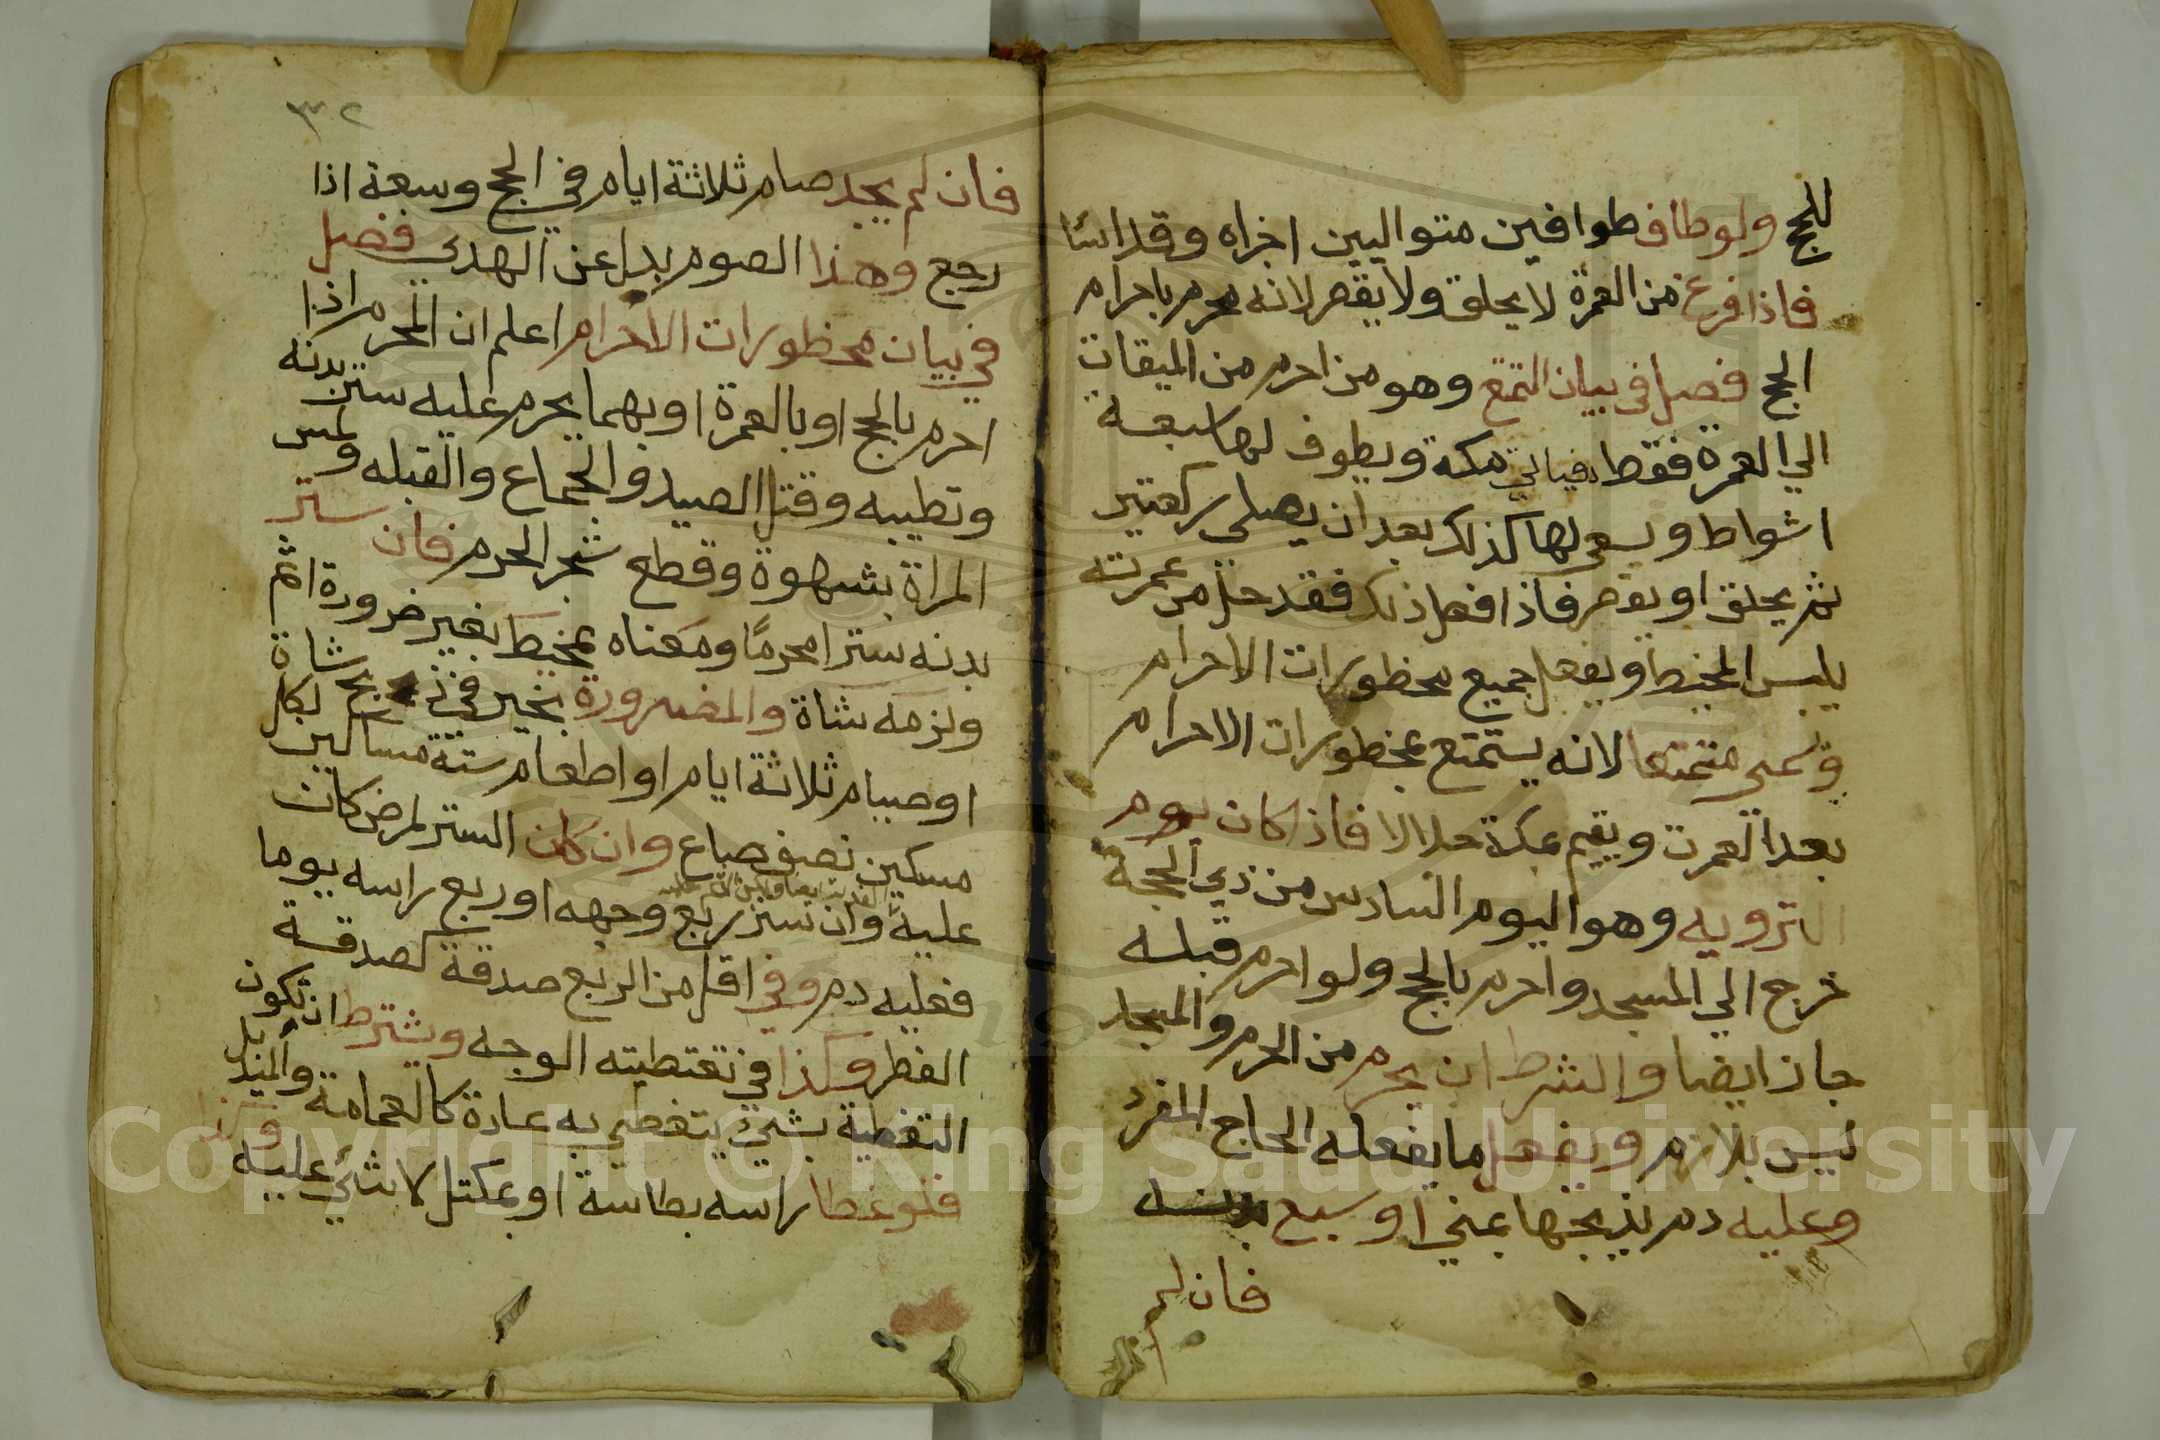 للحج ولو طاف طوافين متواليين اجزاه وقد اسا
فاذا فرغ من العمرة لا يحلق ولا يقصر لانه محرم باحرام
الحج فصل في بيان التمتع وهو من احرم من الميقات
الي العمرة فقط فياتي مكة ويطوف لها سبعة
اشواط ويسعي لها كذلك بعد ان يصلي ركعتين
ثم يحلق او يقصر فاذا فعل ذلك فقد حل من عمرته
يلبس المخيط ويفعل جميع محظورات الاحرام
وسمي متمتعا لانه يستمتع بمحظورات الاحرام
بعد العمرت ويقيم بمكة حلالا فاذا كان يوم
الترويه وهو اليوم السادس من ذي الحجة
خرج الي المسجد واحرم بالحج ولو احرم قبله
جاز ايضا والشرط ان يحرم من الحرم والمسجد
ليس بلازم ويفعل ما يفعله الحاج المفرد
وعليه دم يذبحها بمني او سبع بدنه
فان لم
٣٢
فان لم يجد صام ثلاثة ايام في الحج وسبعة اذا
رجع وهذا الصوم بدل عن الهدي فصل
في بيان محظورات الاحرام اعلم ان المحرم اذا
احرم بالحج او بالعمرة او بهما يحرم عليه ستر بدنه
وتطيبه وقتل الصيد والجماع والقبله ولمس
المراة بشهوة وقطع شجر الحرم فان ستر
بدنه سترا محرمًا ومعناه بمخيط بغير ضرورة اثم
ولزمه شاة والمضرورة يخير في ذبح شاة
او صيام ثلاثة ايام او اطعام ستة مساكين لكل
مسكين نصف صاع وان كان الستر لمرض كان
عليه وان ستر ربع وجهه او ربع راسه يوما
فعليه دم وفي اقل من الربع صدقة كصدقة
الفطر وكذا في تغتطيته الوجه ويشترط ان تكون
التغطية بشيء يتغطي به عادة كالعمامة والمنديل
فلو غطا راسه بطاسة او بمكتل لا شئي عليه وكذا
Copyright © King Saud University